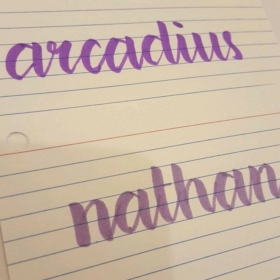 arcadius
nathan